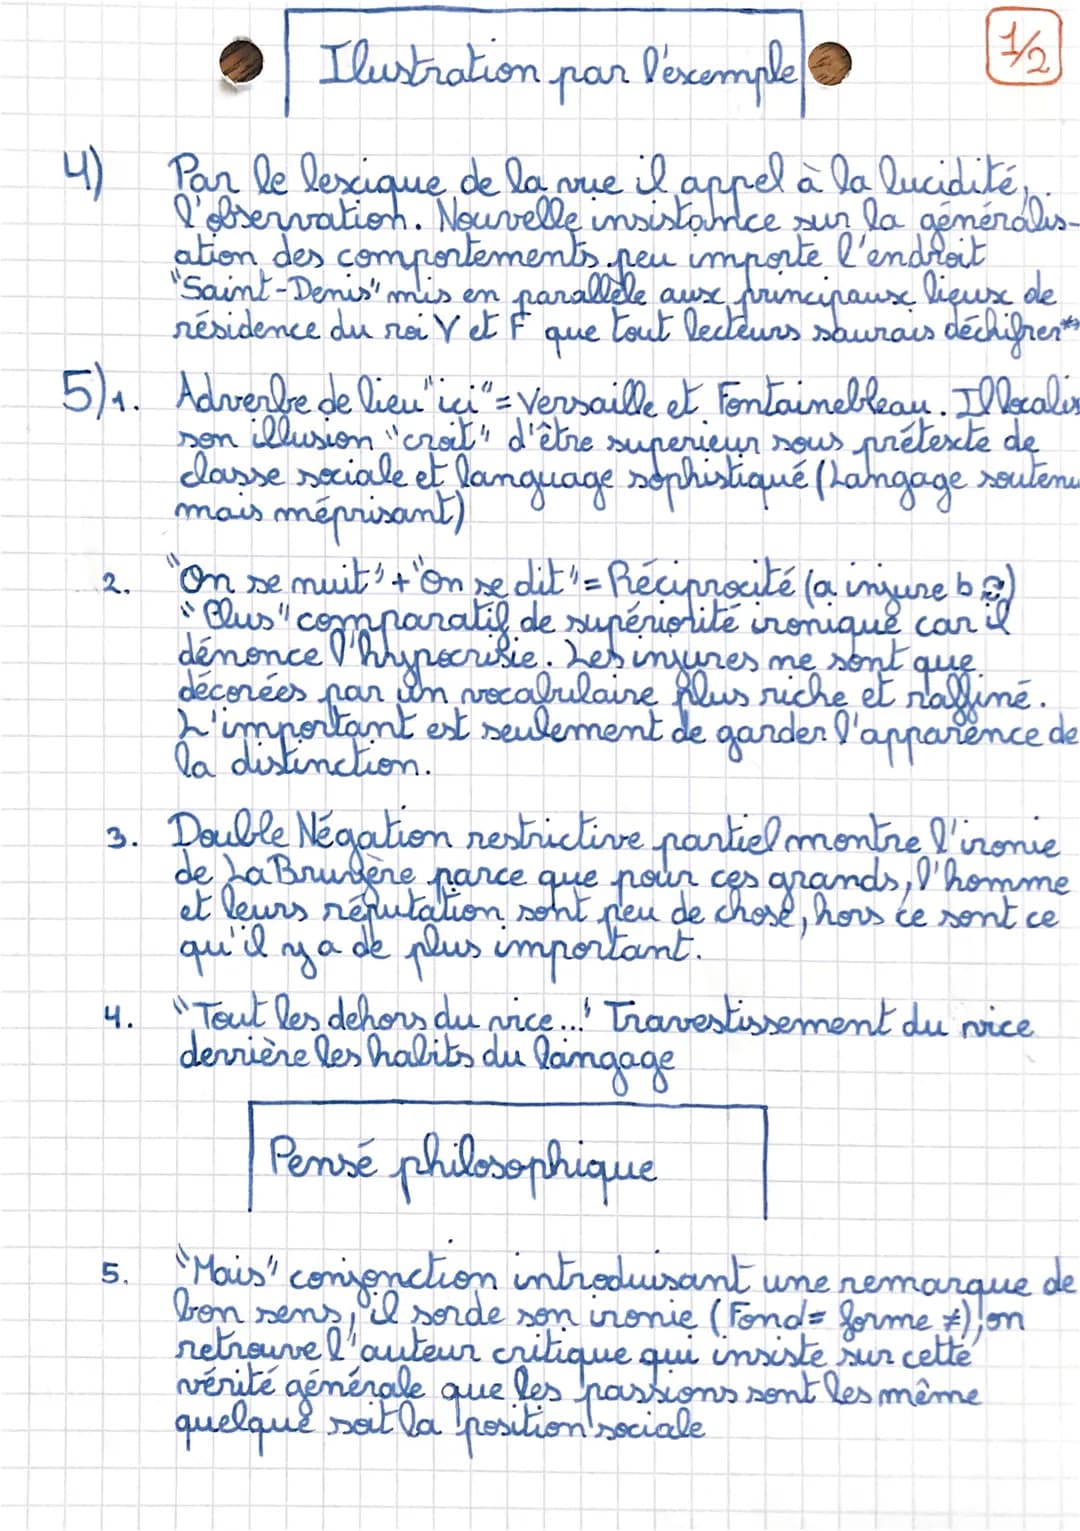 Ilustration par l'exemple
1/2
4) Par le lexique de la vue il appel à la lucidité,
l'observation. Nouvelle insistance sur la généralis-
ation des comportements peu importe l'endroit
"Saint-Denis" mis en parallèle aux principaux lieux de
résidence du roi V et F que tout lecteurs saurais déchifrer*
5) 1. Adverbe de lieu "ici" = Versaille et Fontainebleau. Il localis
son illusion "croit" d'être superieur sous prétexte de
classe sociale et language sophistiqué (Langage soutenu
mais méprisant)
2. "On se nuit" + "On se dit" = Réciprocité (a injure b)
"Plus" comparatif de supériorité ironique car il
dénonce l'hypocrisie. Les injures ne sont que
décorées par un vocabulaire plus riche et raffiné.
L'important est seulement de garder l'apparence de
la distinction.
3. Double Négation restrictive partiel montre l'ironie
de La Bruyère parce que pour ces grands, l'homme
et leurs réputation sont peu de chose, hors ce sont ce
qu'il y a de plus important.
4. "Tout les dehors du vice..." Travestissement du vice
derrière les habits du langage
Pensé philosophique
5. "Mais" conjonction introduisant une remarque de
bon sens, il sorde son ironie (Fond = forme ≠), on
retrouve l'auteur critique qui insiste sur cette
vérité générale que les passions sont les même
quelque soit la position sociale